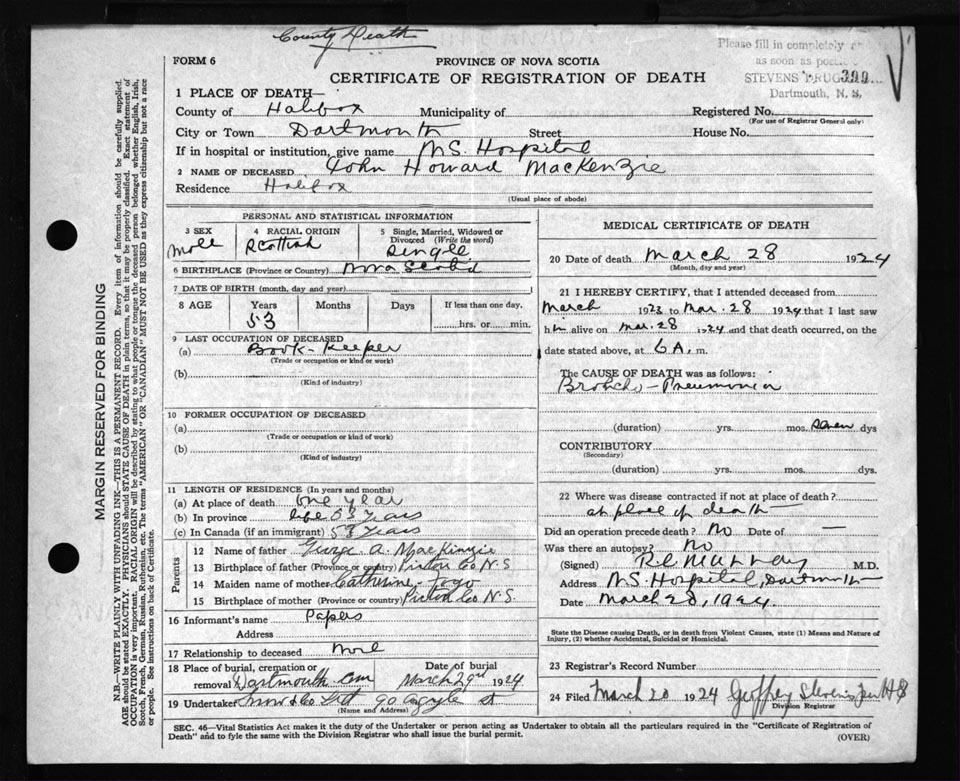 County Death
Please fill in completely
as soon as
FORM 6
PROVINCE OF NOVA SCOTIA
STEVENS DRUG
CERTIFICATE OF REGISTRATION OF DEATH
Dartmouth, N. S.
1 PLACE OF DEATH—
County of Halifax Municipality of Registered No.
(For use of Registrar General only)
City or Town Dartmouth Street House No.
If in hospital or institution, give name N.S. Hospital
2 NAME OF DECEASED John Howard MacKenzie
Residence Halifax
(Usual place of abode)
PERSONAL AND STATISTICAL INFORMATION
3 SEX Male
4 RACIAL ORIGIN Scottish
5 Single, Married, Widowed or Divorced (Write the word) Single
6 BIRTHPLACE (Province or Country) Nova Scotia
7 DATE OF BIRTH (month, day and year)
8 AGE Years Months Days If less than one day,
53 hrs. or min.
9 LAST OCCUPATION OF DECEASED
(a) Book-Keeper
(Trade or occupation or kind or work)
(b)
(Kind of industry)
10 FORMER OCCUPATION OF DECEASED
(a)
(Trade or occupation or kind of work)
(b)
(Kind of industry)
11 LENGTH OF RESIDENCE (In years and months)
(a) At place of death one year
(b) In province life 53 years
(c) In Canada (if an immigrant) 53 years
Parents
12 Name of father George A. MacKinzie
13 Birthplace of father (Province or country) Picton Co N.S
14 Maiden name of mother Catherine
15 Birthplace of mother (Province or country) Picton Co N.S.
16 Informant's name Papers
Address
17 Relationship to deceased
18 Place of burial, cremation or removal Dartmouth Cem
Date of burial March 29th 1924
19 Undertaker Snow & Co 90 Argyle St
(Name and Address)
MEDICAL CERTIFICATE OF DEATH
20 Date of death March 28 1924
(Month, day and year)
21 I HEREBY CERTIFY, that I attended deceased from
March 1923 to Mar. 28 1924 that I last saw
him alive on Mar. 28 1924 and that death occurred, on
date stated above, at 6 A. m.
The CAUSE OF DEATH was as follows:
Broncho-Pneumonia
(duration) yrs. mos. seven dys
CONTRIBUTORY
(Secondary)
(duration) yrs. mos. dys.
22 Where was disease contracted if not at place of death?
at place of death
Did an operation precede death? No Date of —
Was there an autopsy? No
(Signed) M.D.
Address N.S. Hospital, Dartmouth
Date March 28, 1924.
State the Disease causing Death, or in death from Violent Causes, state (1) Means and Nature of
Injury, (2) whether Accidental, Suicidal or Homicidal.
23 Registrar's Record Number
24 Filed March 20 1924 Geoffrey Stevens
Division Registrar
SEC. 46—Vital Statistics Act makes it the duty of the Undertaker or person acting as Undertaker to obtain all the particulars required in the "Certificate of Registration of
Death" and to fyle the same with the Division Registrar who shall issue the burial permit.
(OVER)
MARGIN RESERVED FOR BINDING
N.B.—WRITE PLAINLY WITH UNFADING INK—THIS IS A PERMANENT RECORD. Every item of information should be carefully supplied.
AGE should be stated EXACTLY. PHYSICIANS should STATE CAUSE OF DEATH in plain terms, so that it may be properly classified. Exact statement of
OCCUPATION is very important. RACIAL ORIGIN will be described by stating to what people or tongue the deceased person belonged whether English, Irish,
Scotch, French, German, Russian, Ruthenian, etc. The terms "AMERICAN" OR "CANADIAN" MUST NOT BE USED as they express citizenship but not a race
or people. See instructions on back of Certificate.